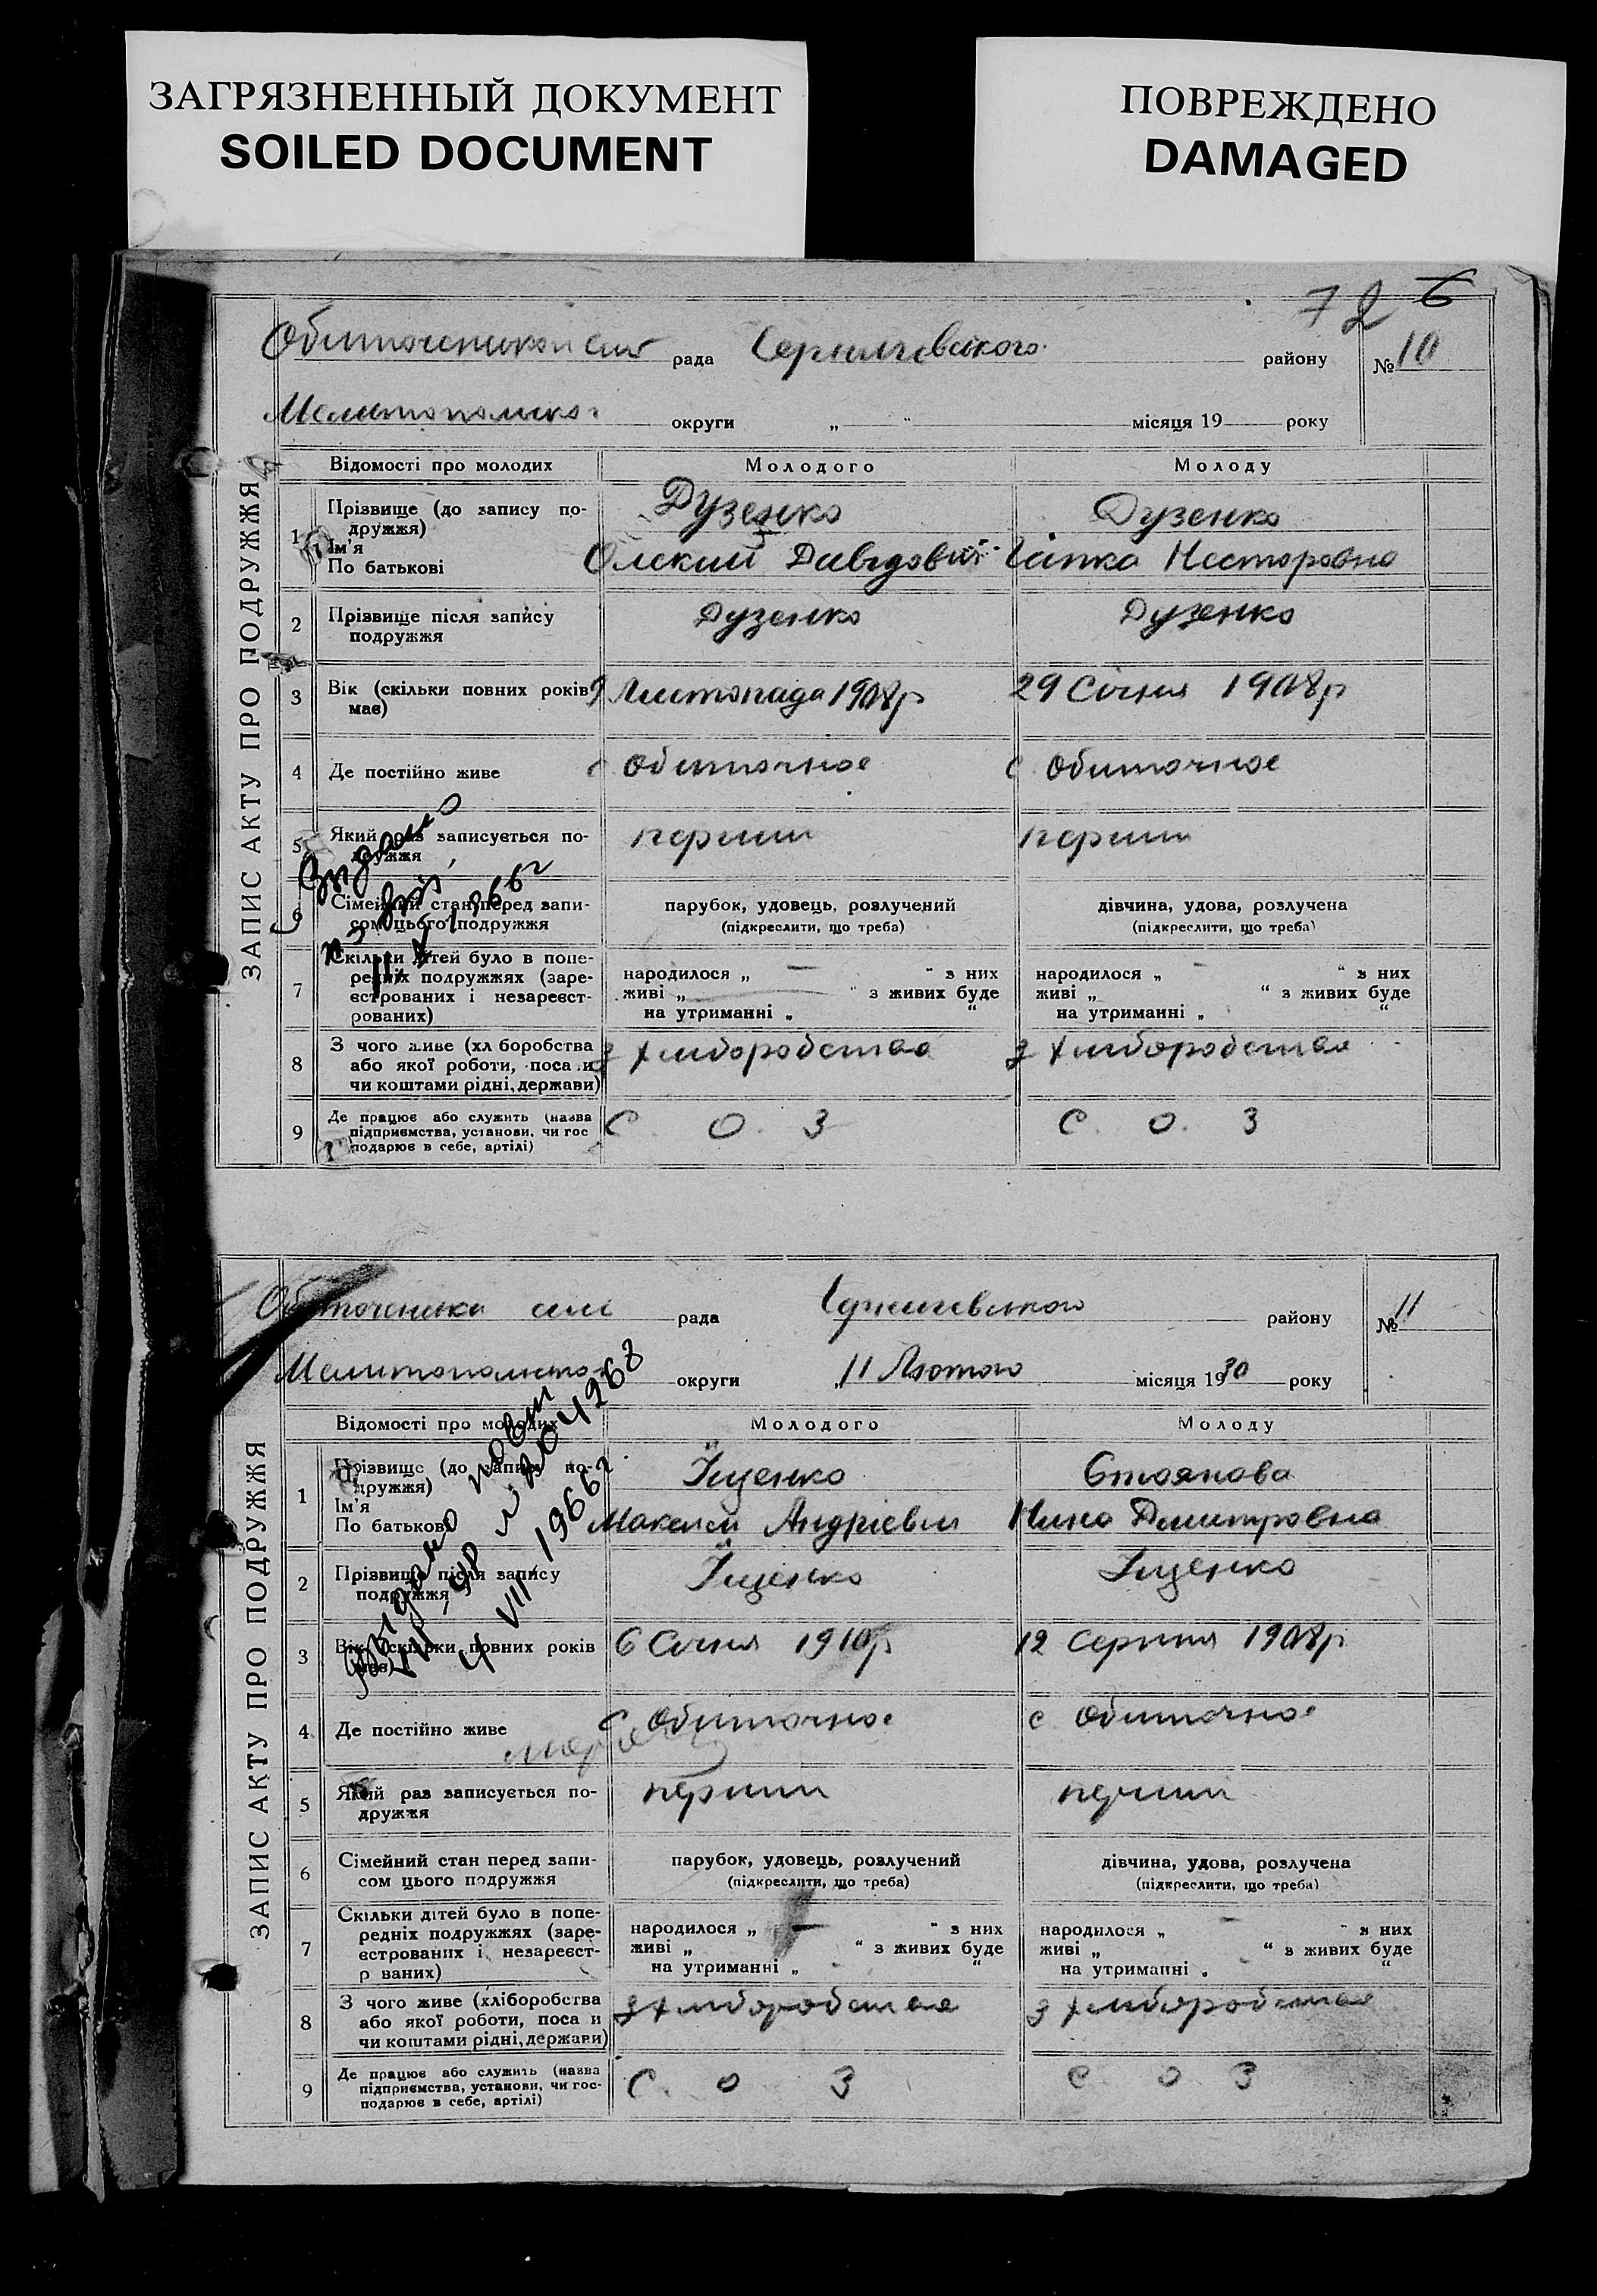 ЗАГРЯЗНЕННЫЙ ДОКУМЕНТ
SOILED DOCUMENT
ПОВРЕЖДЕНО
DAMAGED
72 6
рада району №10
округи „ “ місяця 19 року
ЗАПИС АКТУ ПРО ПОДРУЖЖЯ
Відомості про молодих Молодого Молоду
1 Прізвище (до запису по-
дружжя) Дузенко Дузенко
Ім'я
По батькові Давидович Несторовна
2 Прізвище після запису
подружжя Дузенко Дузенко
3 Вік (скільки повних років
має) 9 Листопада 1908р 29 Січня 1908р
4 Де постійно живе с Обиточное с. Обиточное
5 Який раз записується по-
дружжя перший перший
6 Сімейний стан перед запи-
сом цього подружжя
парубок, удовець, розлучений дівчина, удова, розлучена
(підкреслити, що треба) (підкреслити, що треба)
7 Скільки дітей було в попе-
редніх подружжях (заре-
єстрованих і незареєст-
рованих)
народилося „ — “ з них народилося „ “ з них
живі „ “ з живих буде живі „ “ з живих буде
на утриманні „ “ на утриманні „ “
8 З чого живе (хл боробства
або якої роботи, поса и
чи коштами рідні, держави) з хліборобства з хліборобства
9 Де працює або служить (назва
підприємства, установи, чи гос
подарює в себе, артілі) С. О. З С. О. З
Видано
1966г
рада району № 11
округи „11 Лютого місяця 1930 року
ЗАПИС АКТУ ПРО ПОДРУЖЖЯ
Відомості про молодих Молодого Молоду
1 Прізвище (до запису по-
дружжя) Їщенко Стоянова
Ім'я
По батькові Максим Андрієвич Нина Дмитровна
2 Прізвище після запису
подружжя Їщенко Їщенко
3 Вік (скільки повних років
має) 6 Січня 1910р 12 Серпня 1908р
4 Де постійно живе с Обиточное с Обиточное
5 Який раз записується по-
дружжя перший перший
6 Сімейний стан перед запи-
сом цього подружжя
парубок, удовець, розлучений дівчина, удова, розлучена
(підкреслити, що треба) (підкреслити, що треба)
7 Скільки дітей було в попе-
редніх подружжях (заре-
єстрованих і незареєст-
р ваних)
народилося „ — “ з них народилося „ — “ з них
живі „ “ з живих буде живі „ “ з живих буде
на утриманні „ “ на утриманні „ “
8 З чого живе (хліборобства
або якої роботи, поса и
чи коштами рідні, держави) з хліборобства з хліборобства
9 Де працює або служить (назва
підприємства, установи, чи гос-
подарює в себе, артілі) С. О З С О З
4 VII 1966г.